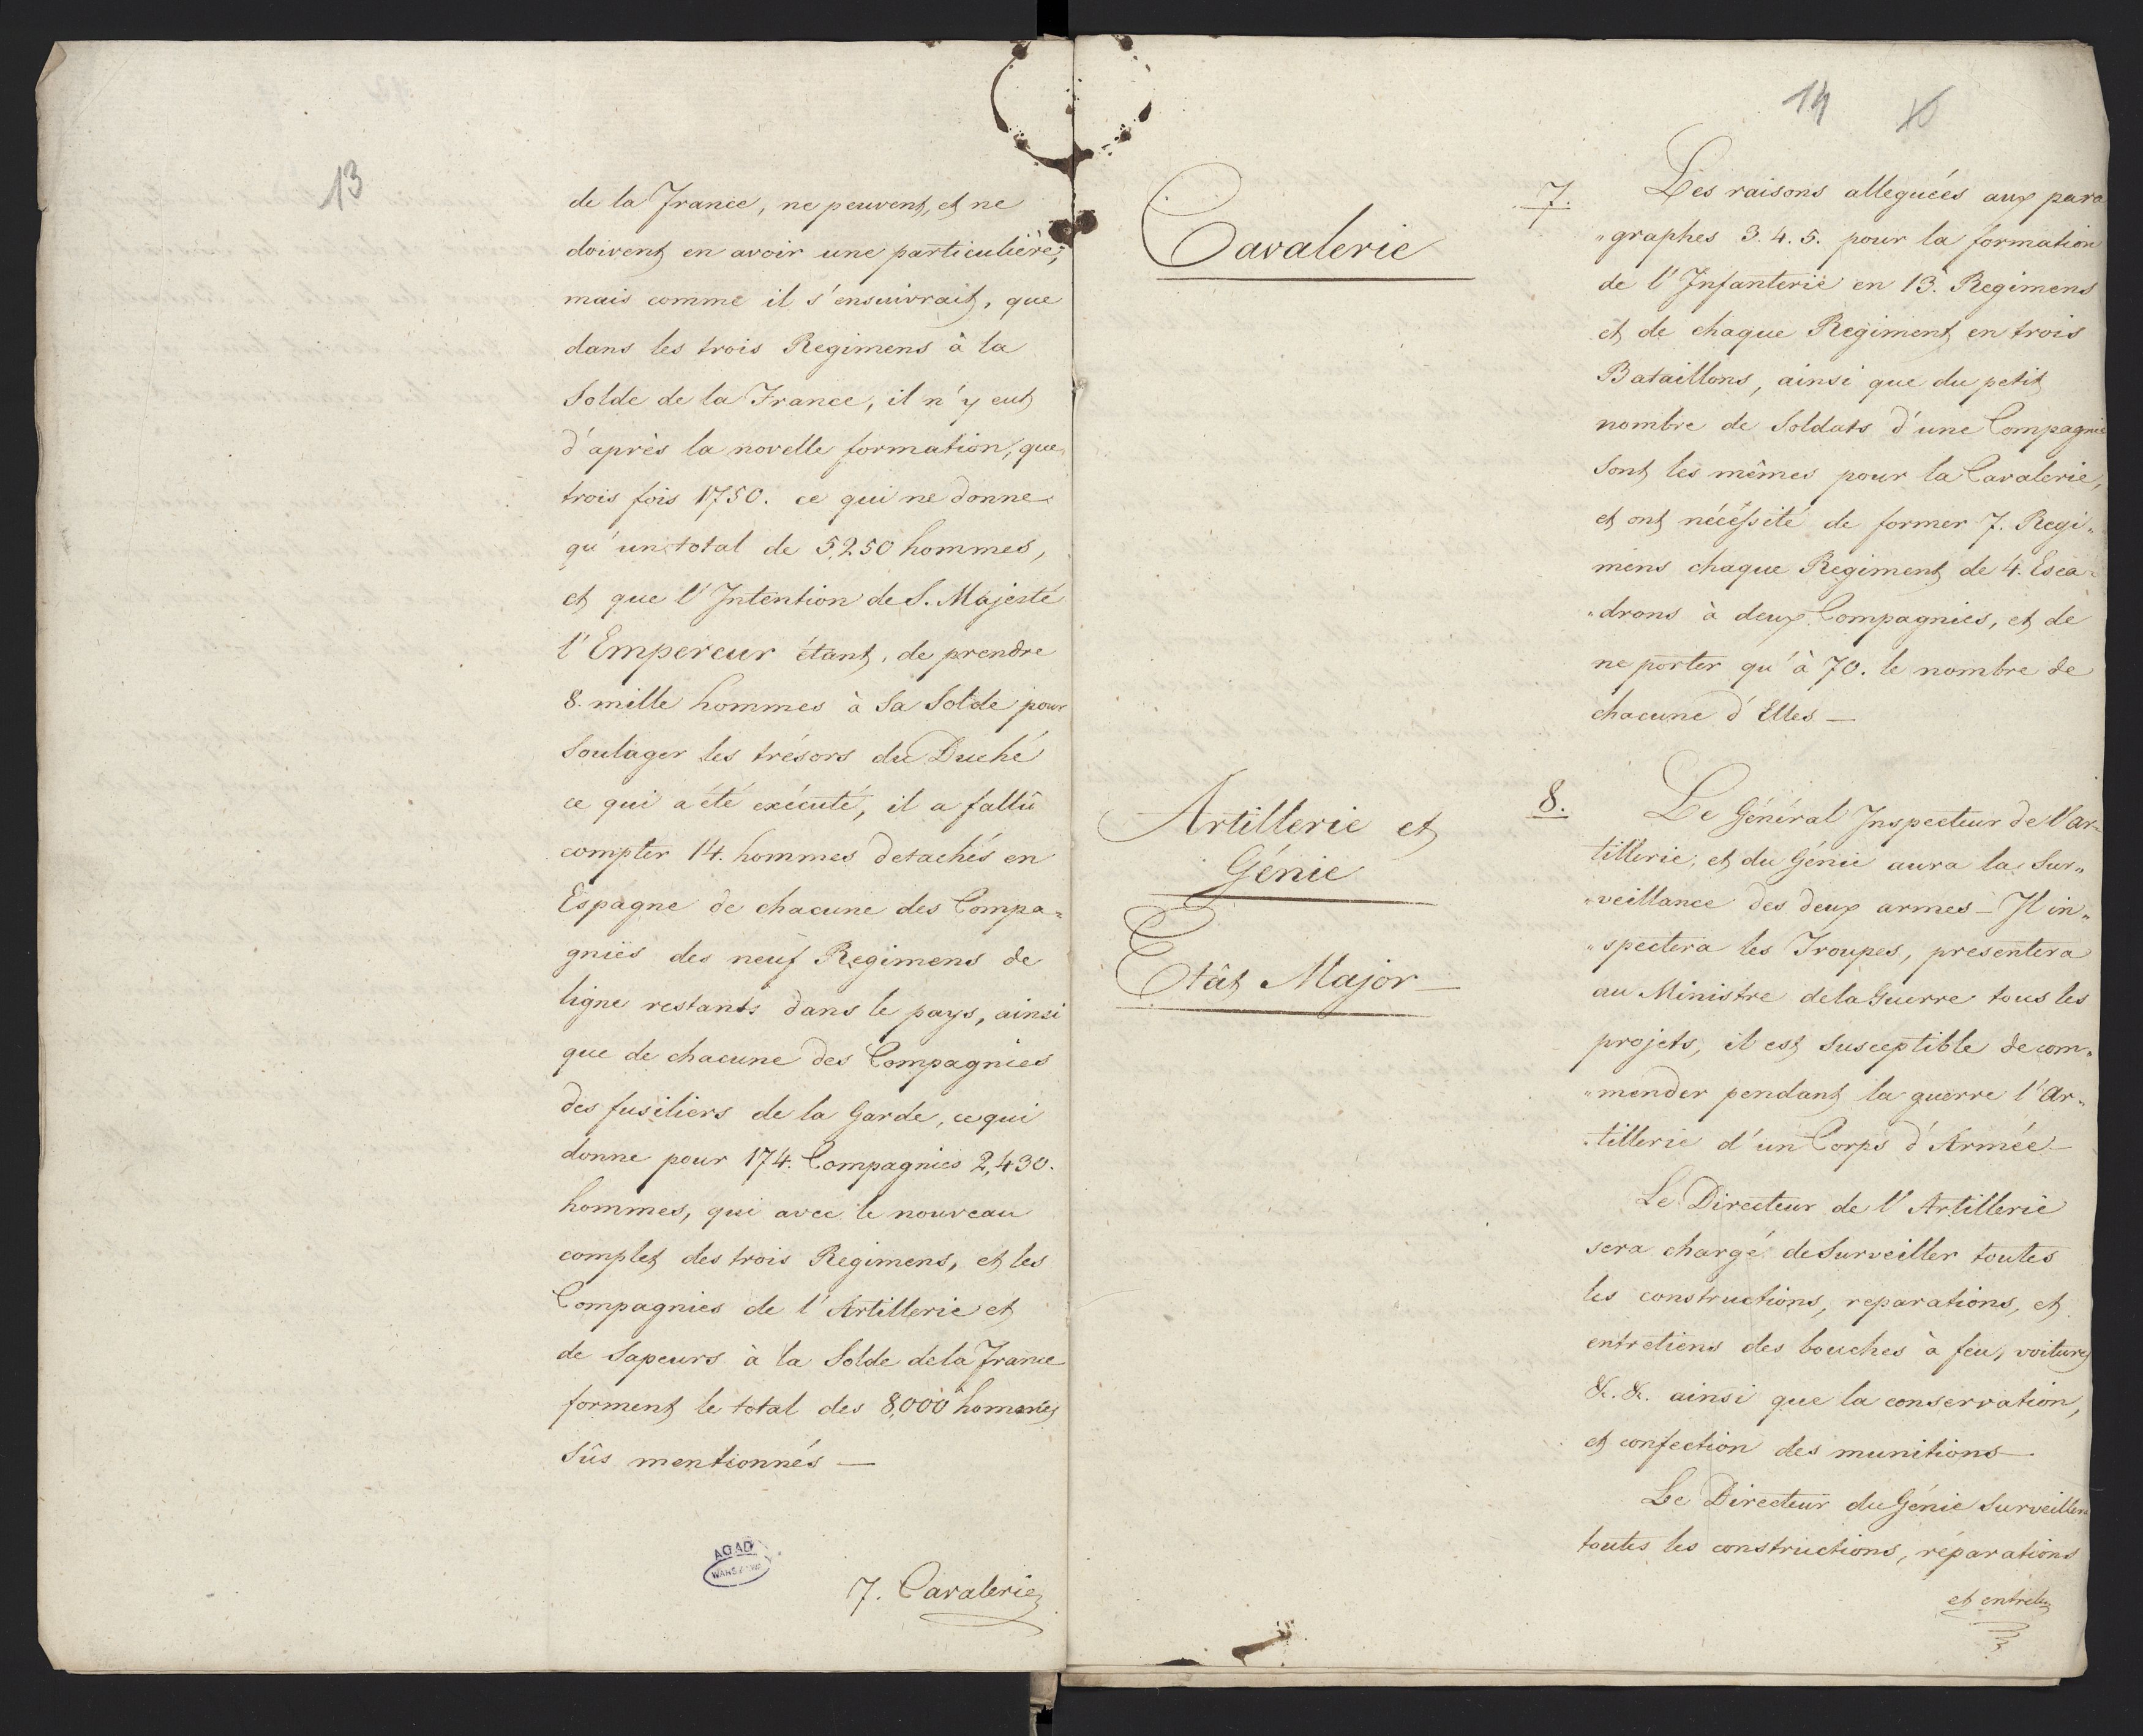 13
de la France, ne peuvent, et ne
doivent en avoir une particulière,
mais comme il s'ensuivrait, que
dans les trois Regimens à la
Solde de la France, il n'y eut
d'après la novelle formation, que
trois fois 1750. ce qui ne donne
qu'un total de 5,250 hommes,
et que l'Intention de S. Majesté
l'Empereur étant, de prendre
8. mille hommes à Sa Solde pour
Soulager les trésors du Duché
ce qui a été exécuté, il a fallû
compter 14. hommes detachés en
Espagne de chacune des Compa=
gniës des neuf Regimens de
ligne restants dans le pays, ainsi
que de chacune des Compagnies
des fusiliers de la Garde, ce qui
donne pour 174. Compagnies 2,430.
hommes, qui avec le nouveau
complet des trois Regimens, et les
Compagnies de l'Artillerie et
de Sapeurs à la Solde de la France
forment le total des 8,000 hommes
Sûs mentionnés —
AGAD
WARSZAWA
7. Cavalerie
14
Cavalerie
7. Les raisons alleguéés aux para
„graphes 3. 4. 5. pour la formation
de l'Infanterie en 13. Regimens
et de chaque Regiment en trois
Bataillons, ainsi que du petit
nombre de Soldats d'une Compagnie
Sont les mêmes pour la Cavalerie,
et ont nécéssité de former 7. Regi„
mens chaque Regiment de 4. Esca„
„drons à deux Compagnies, et de
ne porter qu'à 70. le nombre de
chacune d'Elles —
Artillerie et
Génie
Etât Major —
8. Le Général Inspecteur de l'ar„
tillerie, et du Génie aura la Sur„
„veillance des deux armes — Il in„
„spectera les Troupes, presentera
au Ministre de la Guerre tous les
projets, il est Susceptible de com„
„mender pendant la guerre l'Ar„
„tillerie d'un Corps d'Armée —
Le Directeur de l'Artillerie
sera chargé de Surveiller toutes
les constructions, reparations, et
entretiens des bouches à feu, voitures
&. &. ainsi que la conservation,
et confection des munitions —
Le Directeur du Génie Surveillera
toutes les constructions, réparations
et entretiens